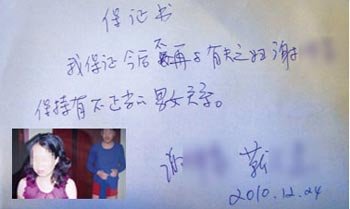 保证书
我保证今后不再与有夫之妇谢
保持有不正当的男女关系。
谢
2010.12.24